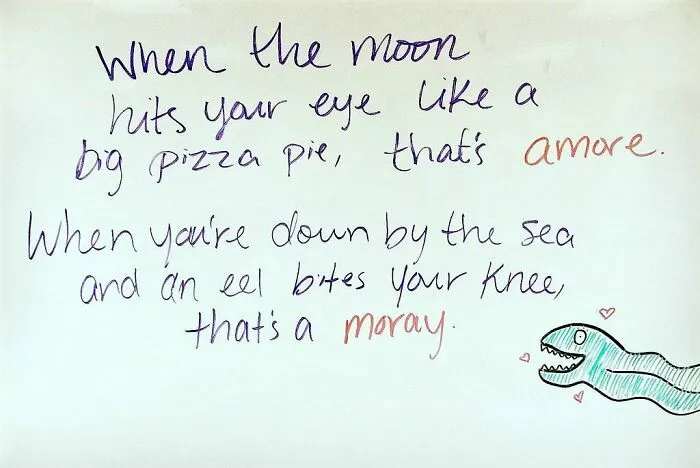 When the moon
hits your eye like a
big pizza pie, that's amore.
When you're down by the sea
and an eel bites your knee,
that's a moray.